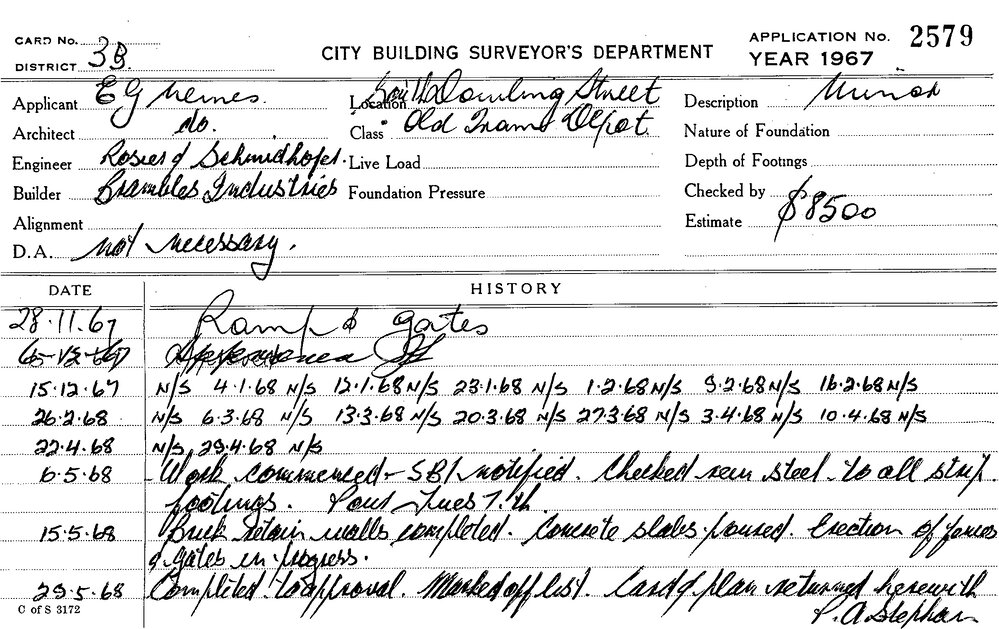 CARD No. 3B. CITY BUILDING SURVEYOR'S DEPARTMENT APPLICATION No. 2579
DISTRICT YEAR 1967
Applicant E G Nemes. Location South Dowling Street Description Minor
Architect do. Class Old Trams Depot. Nature of Foundation
Engineer Rosier & Schmidhofer. Live Load Depth of Footings
Builder Brambles Industries Foundation Pressure Checked by
Alignment Estimate $8500
D.A. not necessary.
DATE HISTORY
28.11.67 Ramp & gates
15.12.67 N/S 4.1.68 N/S 12.1.68 N/S 23.1.68 N/S 1.2.68 N/S 9.2.68 N/S 16.2.68 N/S
26.2.68 N/S 6.3.68 N/S 13.3.68 N/S 20.3.68 N/S 27.3.68 N/S 3.4.68 N/S 10.4.68 N/S
22.4.68 N/S 29.4.68 N/S
6.5.68 Work commenced - SBI notified. Checked rein steel to all strip
footings. Pour Tues 7.th.
15.5.68 Brick retain walls completed. Concrete slabs poured. Erection of fences
& gates in progress.
29.5.68 Completed to approval. Marked off list. Card & plan returned herewith
C of S 3172 P. A Stephan